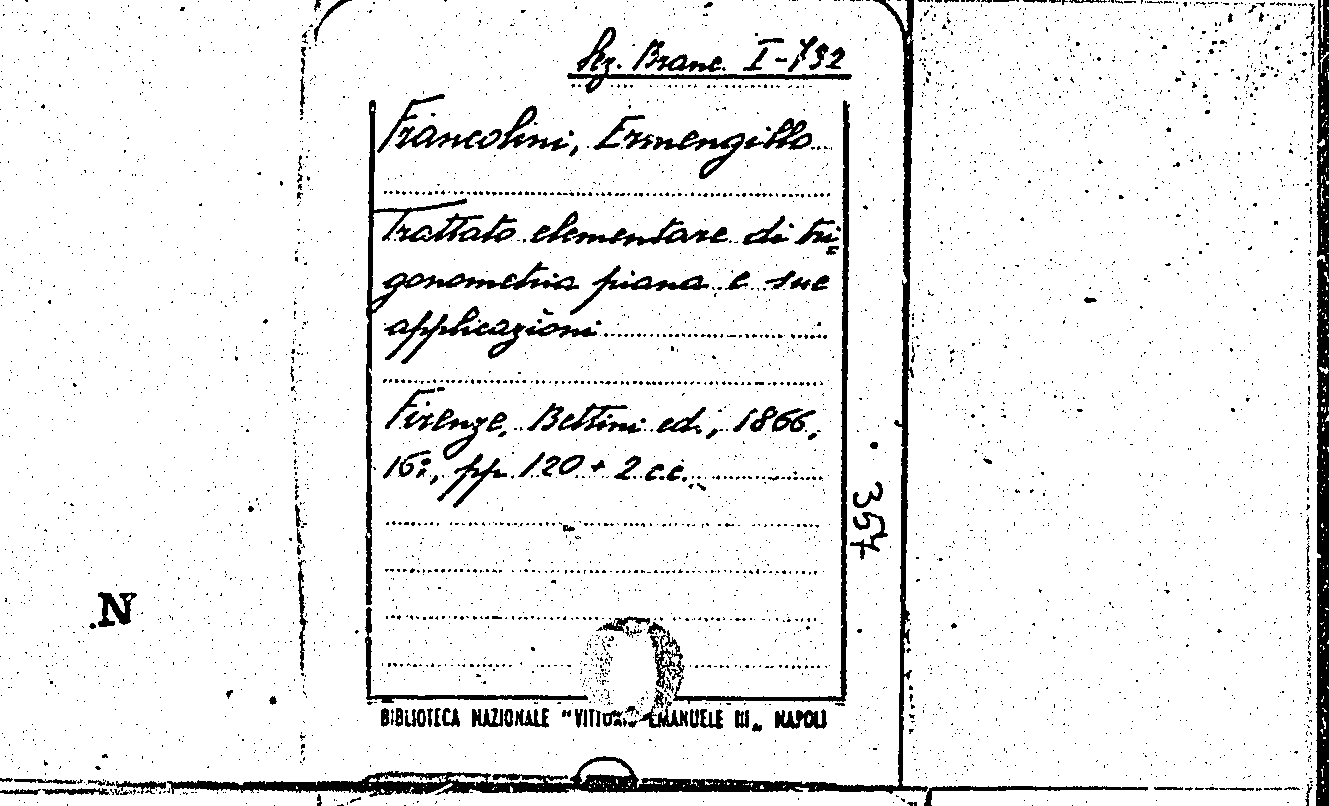 Sez. Branc. I-732
Francolini, Ermengillo
Trattato elementare di tri=
gonometria piana e sue
applicazioni
Firenze, Bettini ed., 1866,
16º, pp. 120 + 2 c.c.
357
N
BIBLIOTECA NAZIONALE "VITTORIO EMANUELE III„ NAPOLI